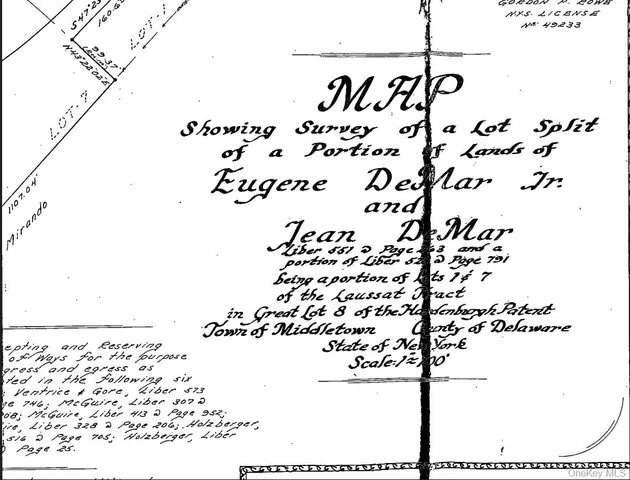 GORDON P. ROWE
N.Y.S. LICENSE
Nº 49233
S47°23'
160.6
LOT-1
99.37'
N43°22'02"E
LOT-7
1107.04'
Mirando
MAP
Showing Survey of a Lot Split
of a Portion of Lands of
Eugene DeMar Jr.
and
Jean DeMar
Liber 557 @ Page 263 and a
portion of Liber @ Page 791
being a portion of Lots 1 & 7
of the Laussat Tract
in Great Lot 8 of the Hardenburgh Patent
Town of Middletown County of Delaware
State of New York
Scale: 1"=100'
epting and Reserving
of Ways for the purpose
gress and egress as
ted in the following six
Ventrice & Gore, Liber 573
ge 746; McGuire, Liber 307 @
08; McGuire, Liber 413 @ Page 952;
ire, Liber 328 @ Page 206; Holzberger,
516 @ Page 705; Holzberger, Liber
@ Page 25.
OneKey MLS